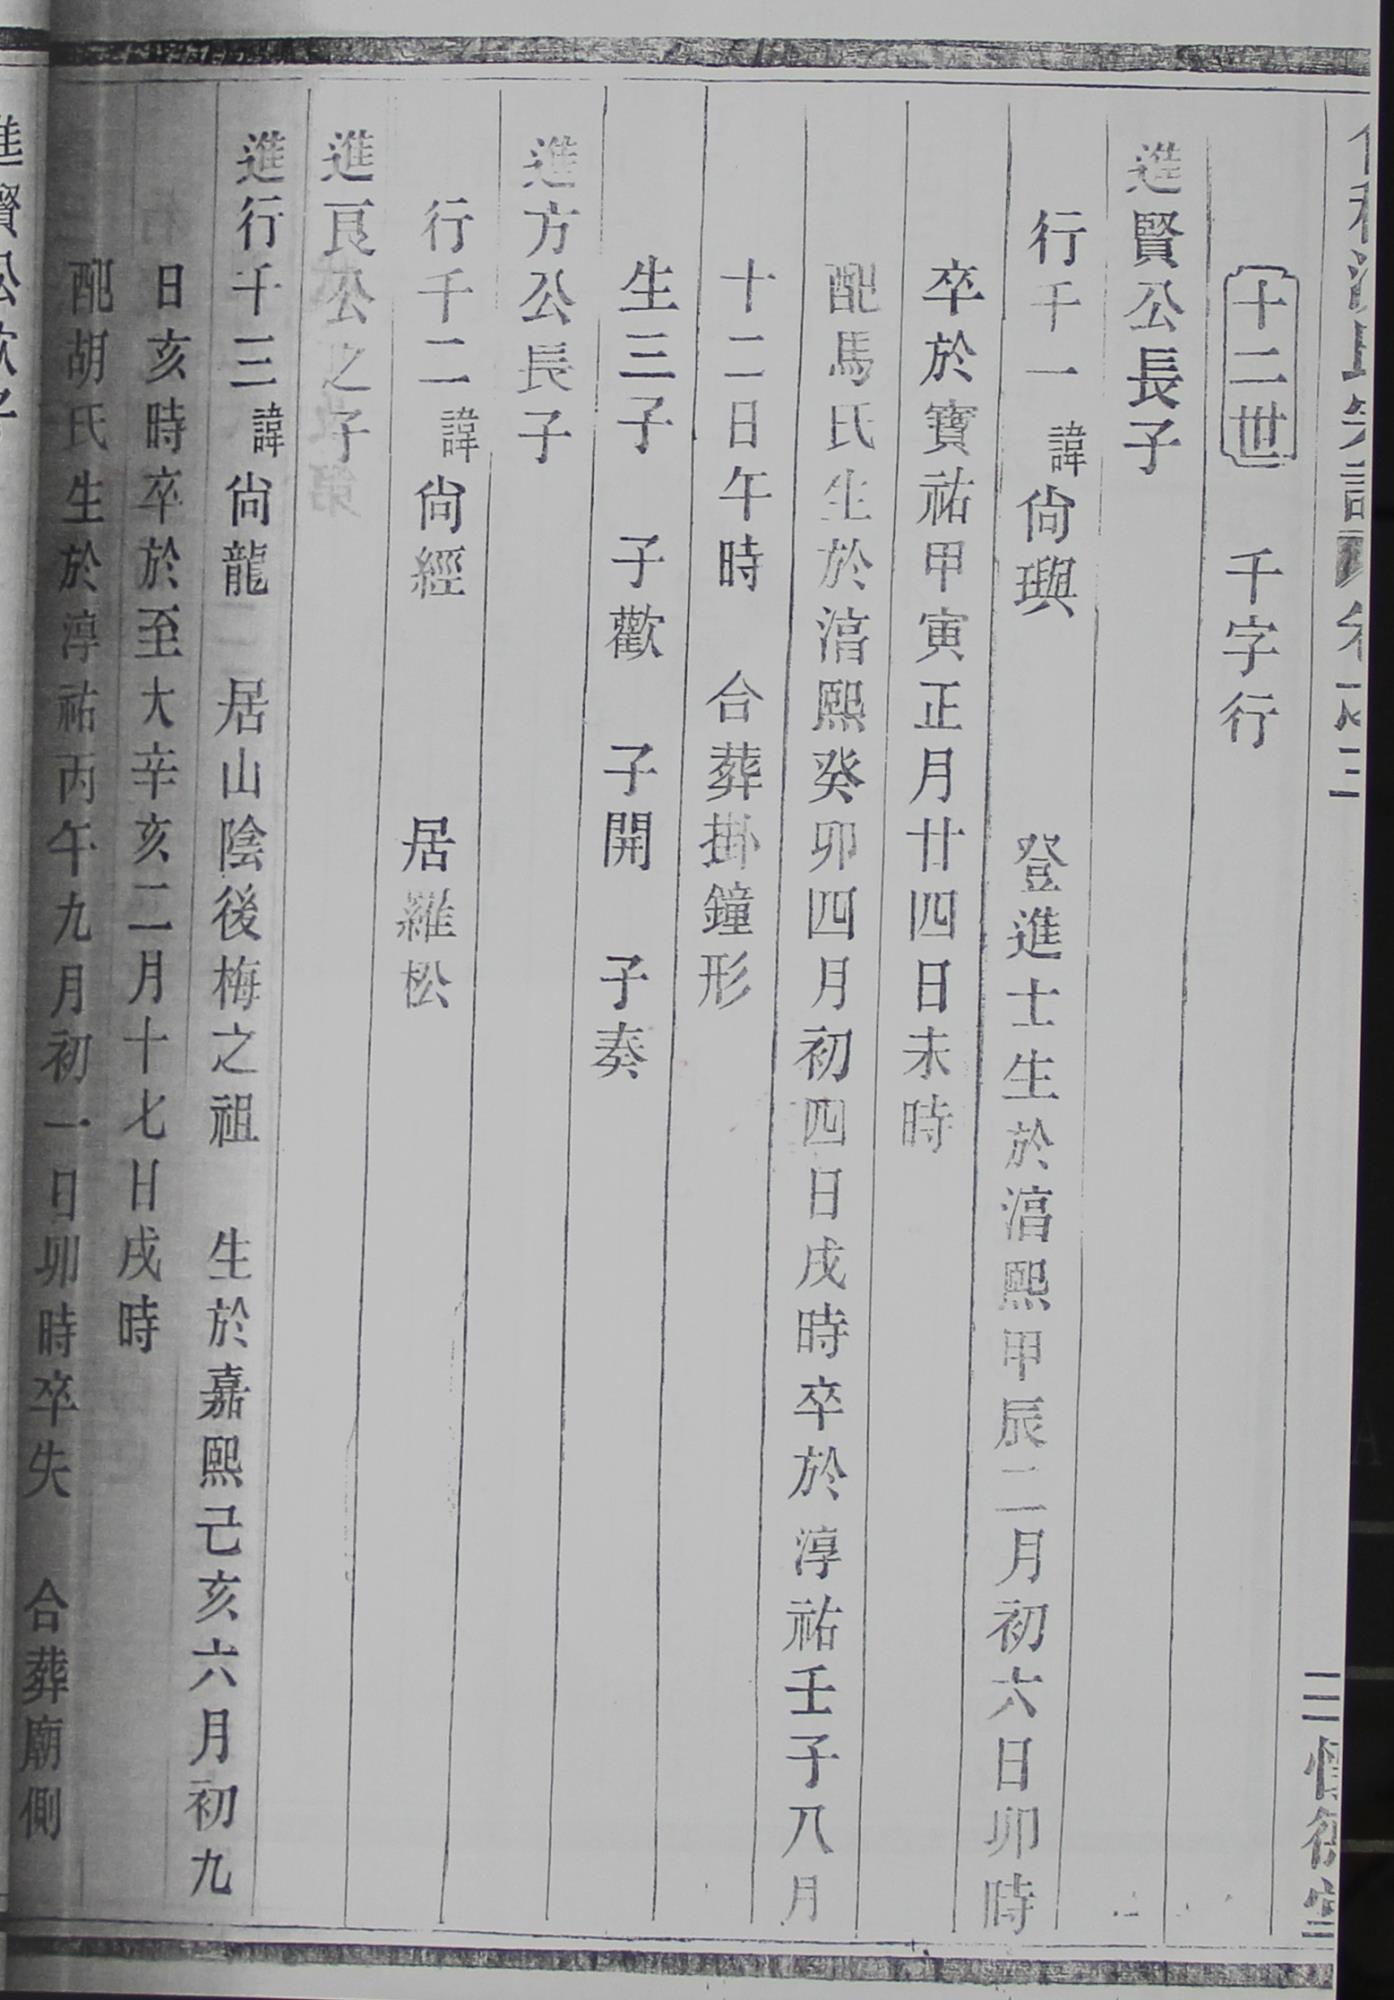 宗譜 卷之三 二
十二世 千字行
進賢公長子
行千一諱尙璵 登進士生於湻熙甲辰二月初六日卯時
卒於寶祐甲寅正月廿四日未時
配馬氏生於湻熙癸卯四月初四日戌時卒於淳祐壬子八月
十二日午時 合葬掛鐘形
生三子 子歡 子開 子奏
進方公長子
行千二諱尙經 居羅松
進良公之子
進行千三諱尙龍 居山陰後梅之祖 生於嘉熙己亥六月初九
日亥時卒於至大辛亥二月十七日戌時
配胡氏生於淳祐丙午九月初一日卯時卒失 合葬廟側
進賢公次子